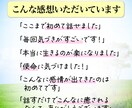 こんな感想いただいています
「ここまで初めて話せました」
「毎回気づきがすごいです！」
「本当に生きるのが楽になりました」
「使命に気づけました！」
「こんなに感情が出てきたのは
初めてです」
「話すだけでこんなに癒される